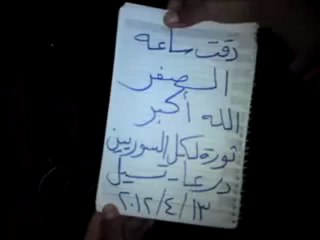 دقت ساعه
الصفر
الله أكبر
ثورة لكل السوريين
درعا - تسيل
٢٠١٢/٤/١٣